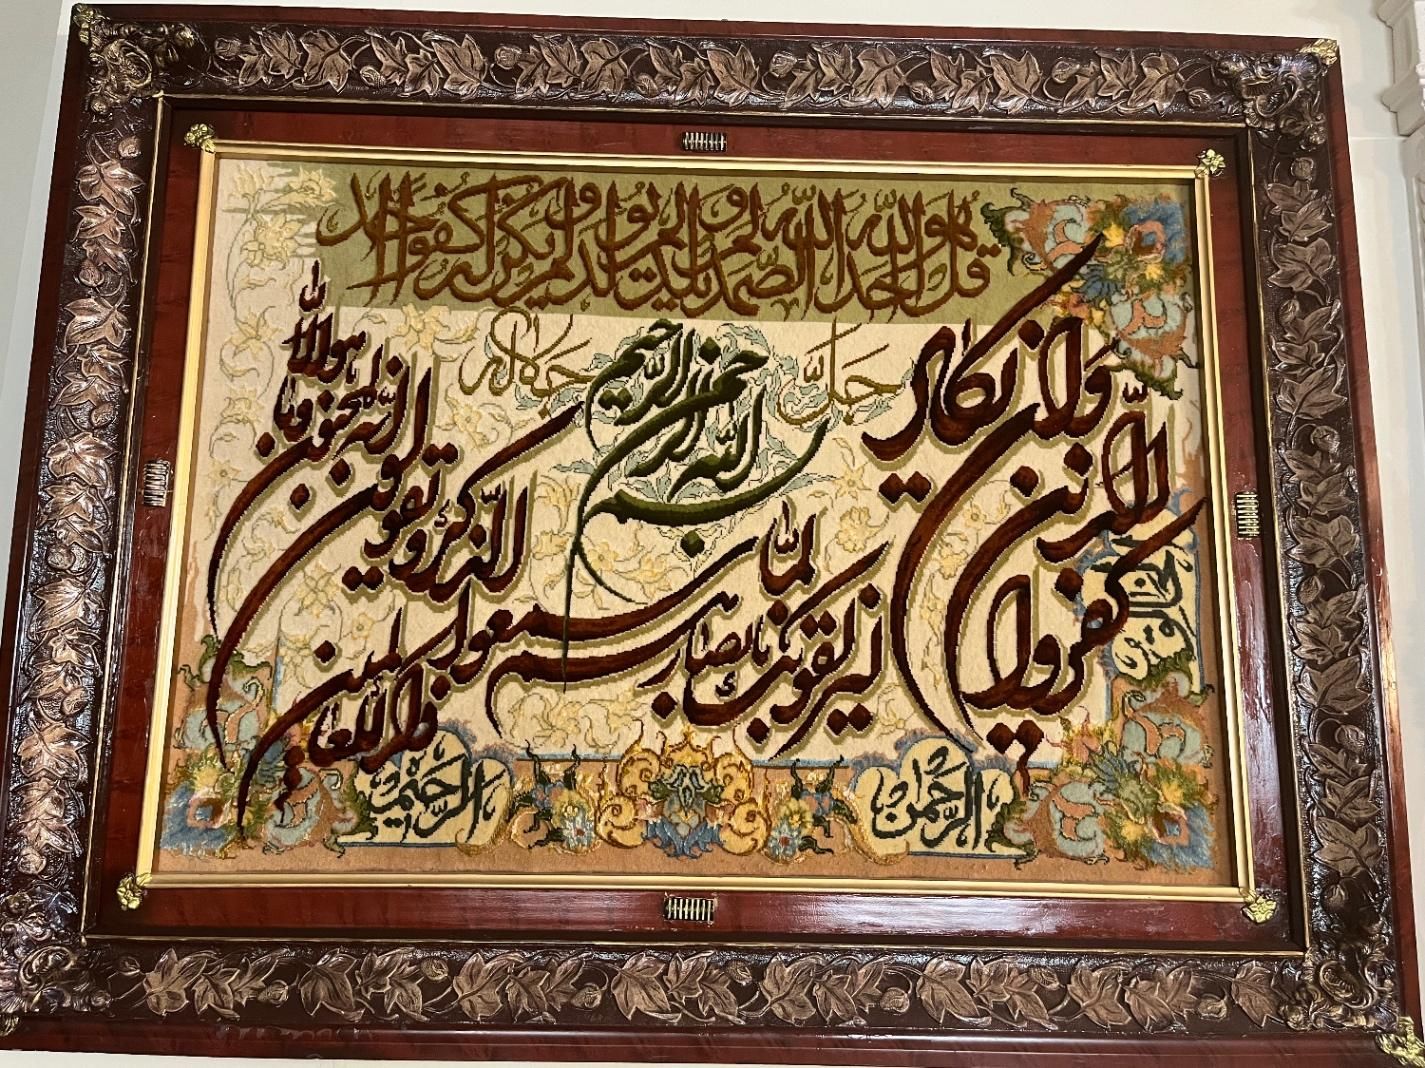 قل هو الله احد الله الصمد لم يلد و لم يولد و لم يكن له كفوا احد
جل جلاله
بسم الله الرحمن الرحيم
وان يكاد الذين كفروا ليزلقونك بابصارهم لما سمعوا الذكر و يقولون انه لمجنون وما هو الا ذكر للعالمين
الرحمن
الرحيم